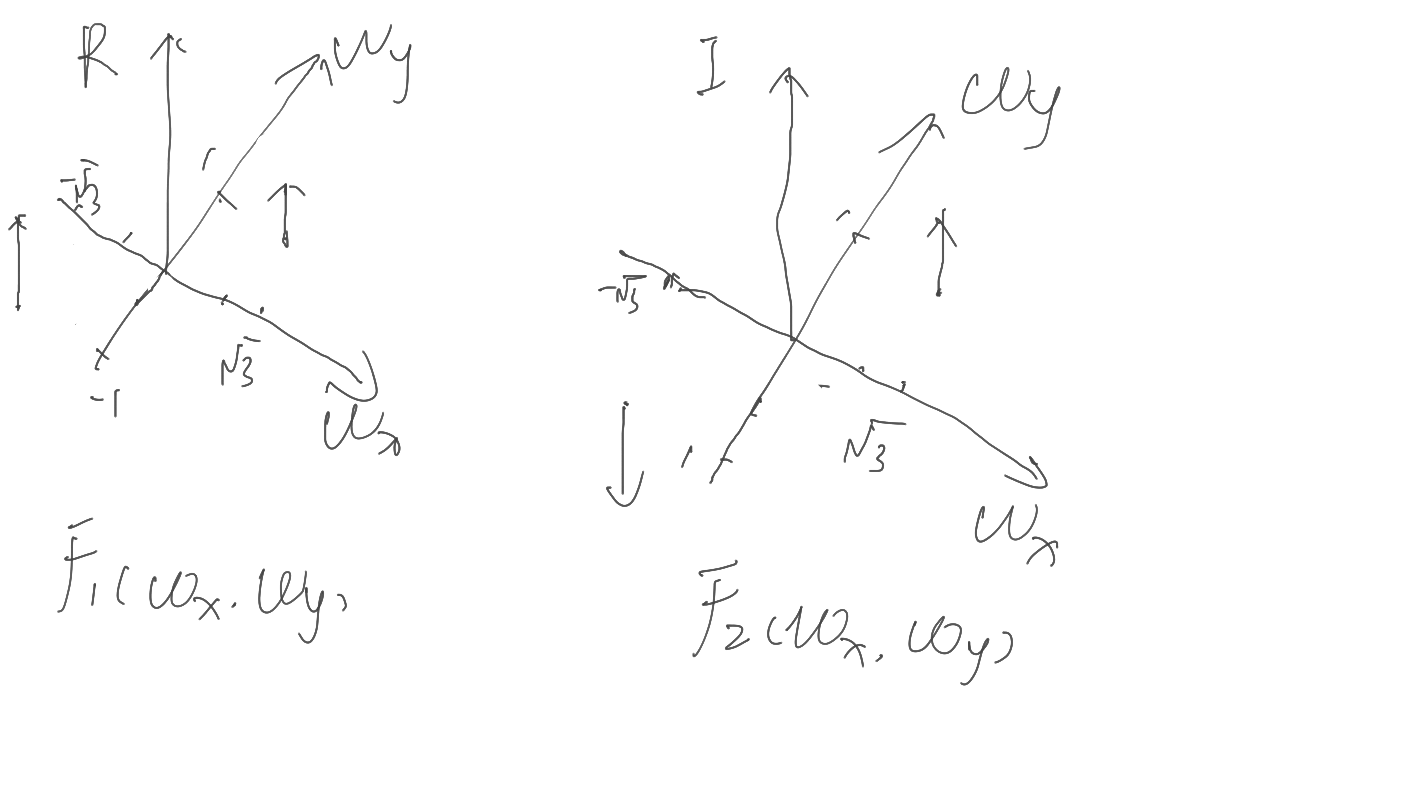 R
ωy
1
-√3
√3
-1
ωx
F₁(ωx, ωy)
I
ωy
1
-√3
-
√3
1
ωx
F₂(ωx, ωy)